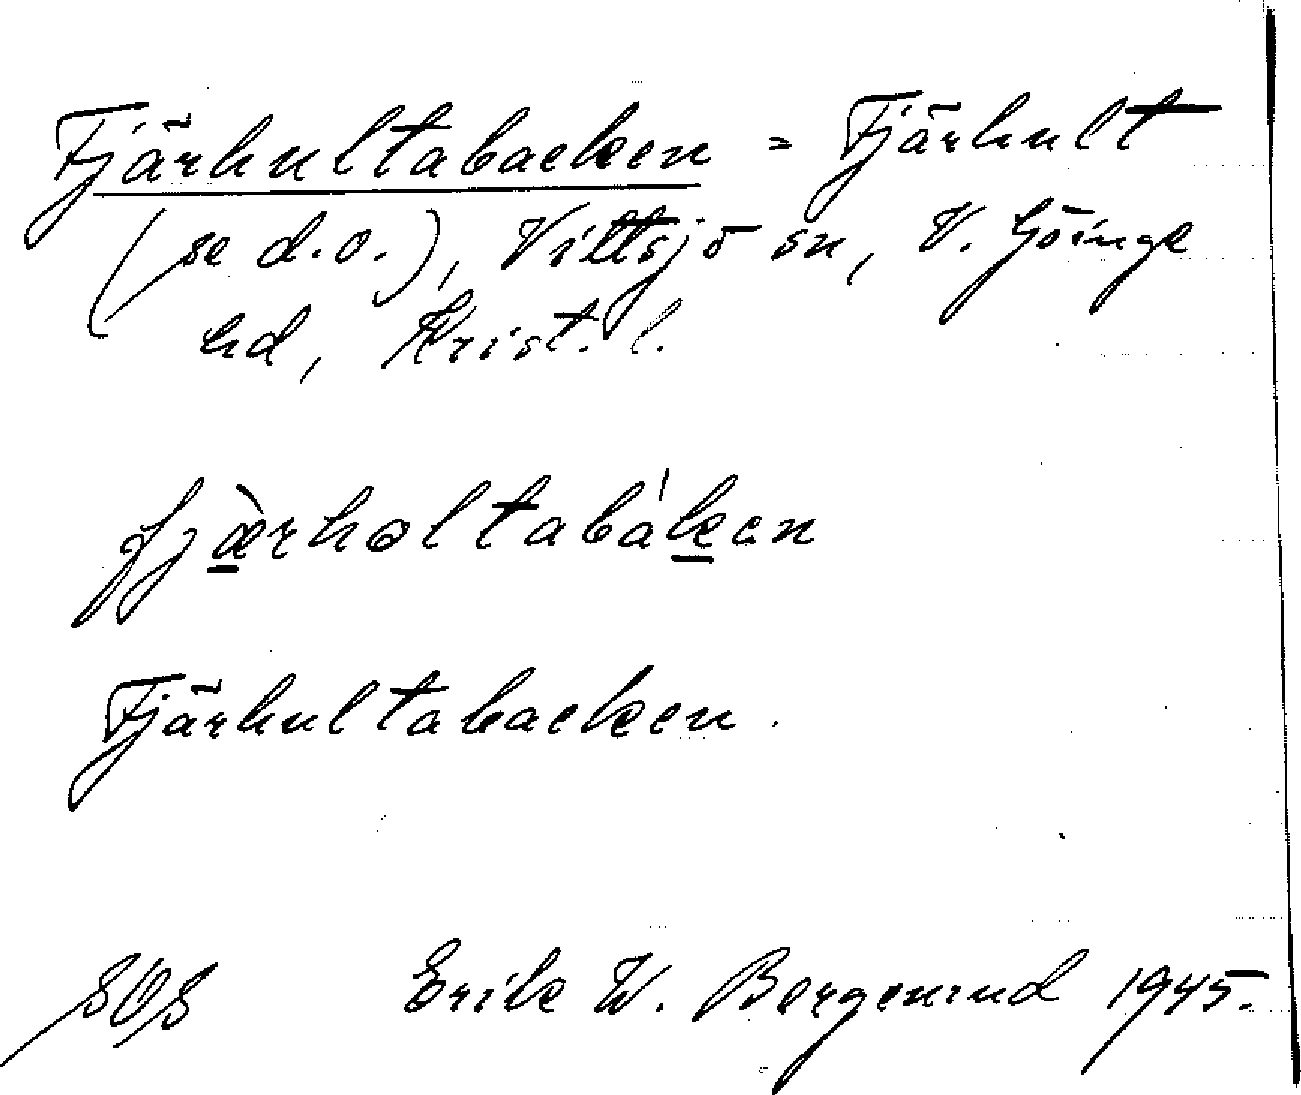 Fjärhultabacken = Fjärhult
(se d.o.), Vittsjö sn, V. Göinge
hd, Krist. l.
fjæ̀rhøltabáken
Fjärhultabacken.
Erik W. Bergenrud 1945.